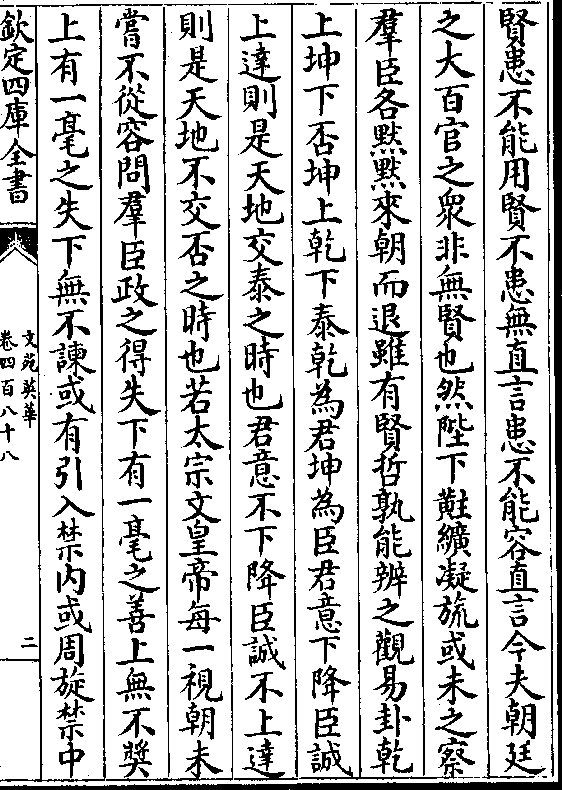 賢患不能用賢不患無直言患不能容直言今夫朝廷
之大百官之衆非無賢也然陛下黈纊凝旒或未之察
羣臣各黙黙來朝而退雖有賢哲孰能辨之觀易卦乾
上坤下否坤上乾下泰乾為君坤為臣君意下降臣誠
上達則是天地交泰之時也君意不下降臣誠不上達
則是天地不交否之時也若太宗文皇帝每一視朝未
嘗不從容問羣臣政之得失下有一毫之善上無不奬
上有一毫之失下無不諫或有引入禁内或周旋禁中
欽定四庫全書
文苑英華
卷四百八十八
二